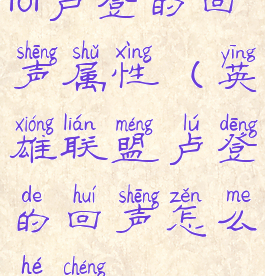 lol卢登的回
shēng shǔ xìng yīng
声属性（英
xióng lián méng lú dēng
雄联盟卢登
de huí shēng zěn me
的回声怎么
hé chéng